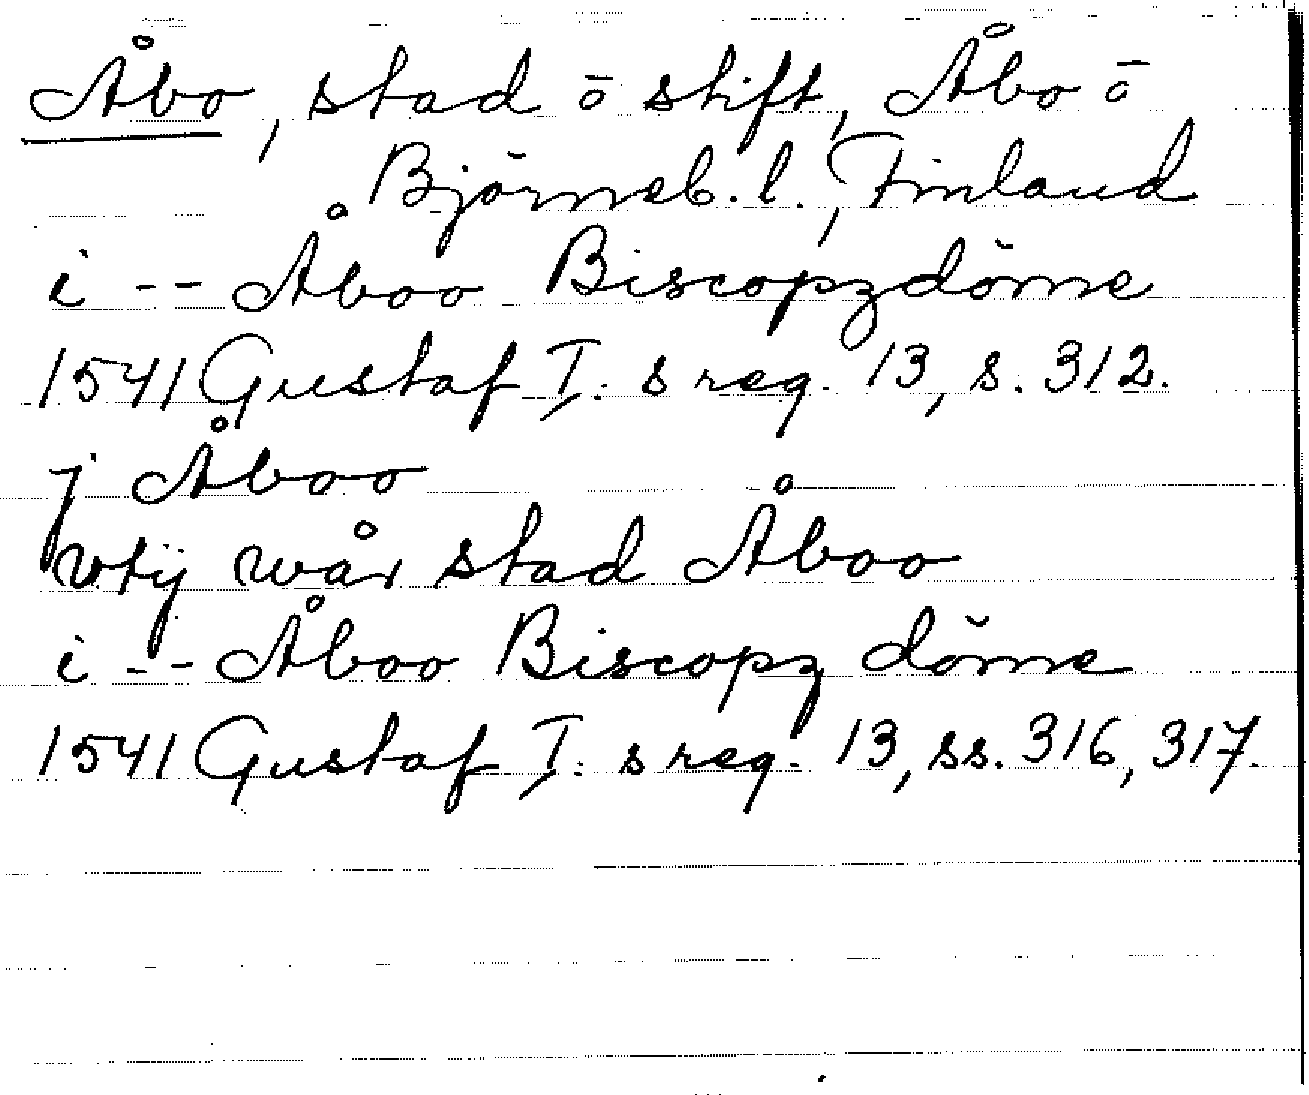 Åbo, stad o stift, Åbo o
Björneb. l., Finland
i -- Åboo Biscopzdöme
1541 Gustaf I. s reg. 13, s. 312.
j Åboo
vtij wår stad Åboo
i -- Åboo Biscopz döme
1541 Gustaf I. s reg. 13, ss. 316, 317.